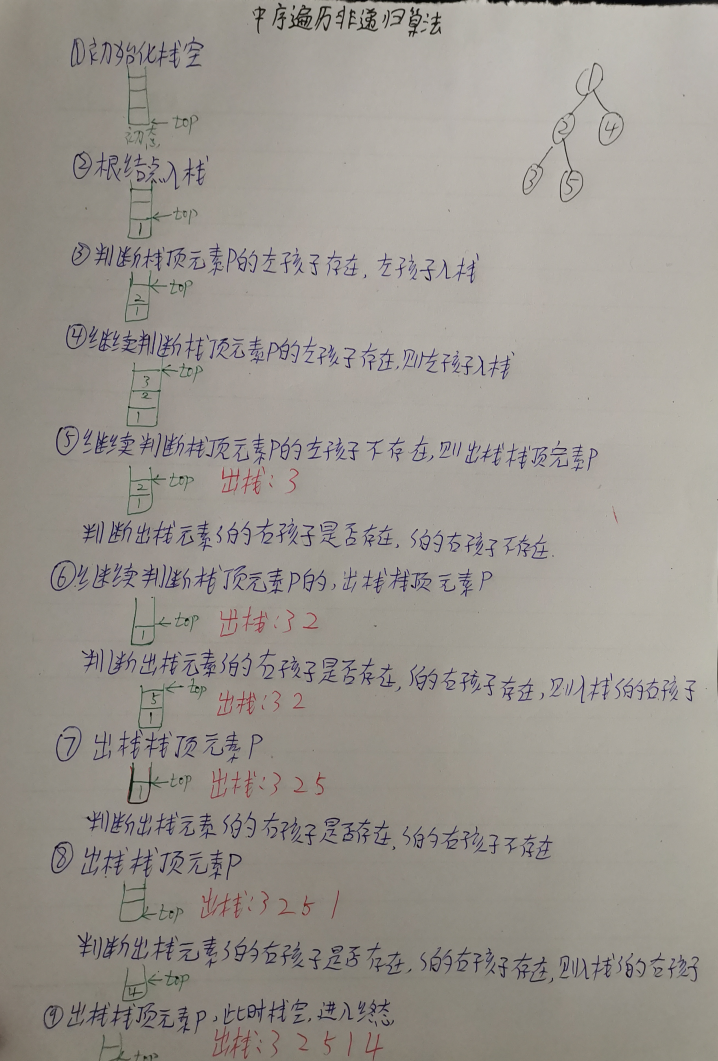 中序遍历非递归算法
①初始化栈空
1
2 4
3 5
←top
初态
②根结点入栈
←top
1
③判断栈顶元素P的左孩子存在,左孩子入栈
←top
2
1
④继续判断栈顶元素P的左孩子存在,则左孩子入栈
←top
3
2
1
⑤继续判断栈顶元素P的左孩子不存在,则出栈栈顶元素P
2 ←top 出栈:3
1
判断出栈元素S的右孩子是否存在,S的右孩子不存在.
⑥继续判断栈顶元素P的,出栈栈顶元素P
1 ←top 出栈:3 2
判断出栈元素S的右孩子是否存在,S的右孩子存在,则入栈S的右孩子
←top
5 出栈:3 2
1
⑦ 出栈栈顶元素P.
1 ←top 出栈:3 2 5
判断出栈元素S的右孩子是否存在,S的右孩子不存在
⑧ 出栈栈顶元素P
←top 出栈:3 2 5 1
判断出栈元素S的右孩子是否存在,S的右孩子存在,则入栈S的右孩子
4 ←top
⑨出栈栈顶元素P,此时栈空,进入终态
←top 出栈:3 2 5 1 4